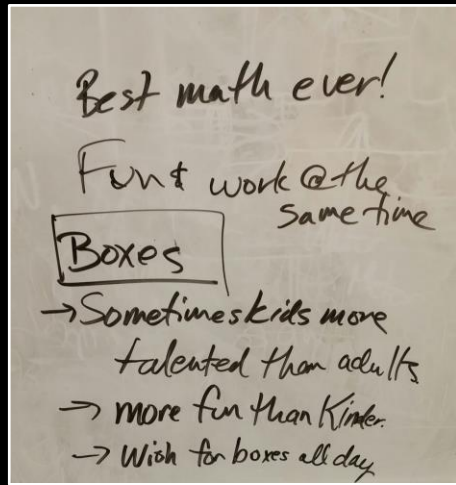 Best math ever!
Fun & work @ the
same time
Boxes
→ Sometimes kids more
talented than adults
→ more fun than Kinder.
→ Wish for boxes all day